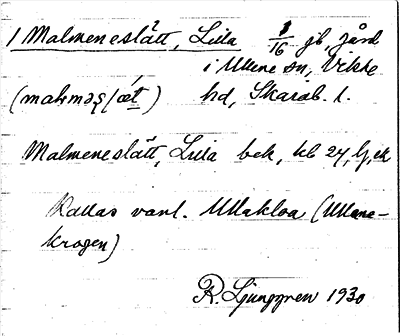 1 Malmeneslätt, Lilla 1/16 jb, gård
i Ullene sn, Vilske
(malməṣlæt) hd, Skarab. l.
Malmeneslätt, Lilla bek, kb 24, Lj, ek
Kallas vanl. Ullakloa (Ullene-
krogen)
R. Ljunggren 1930